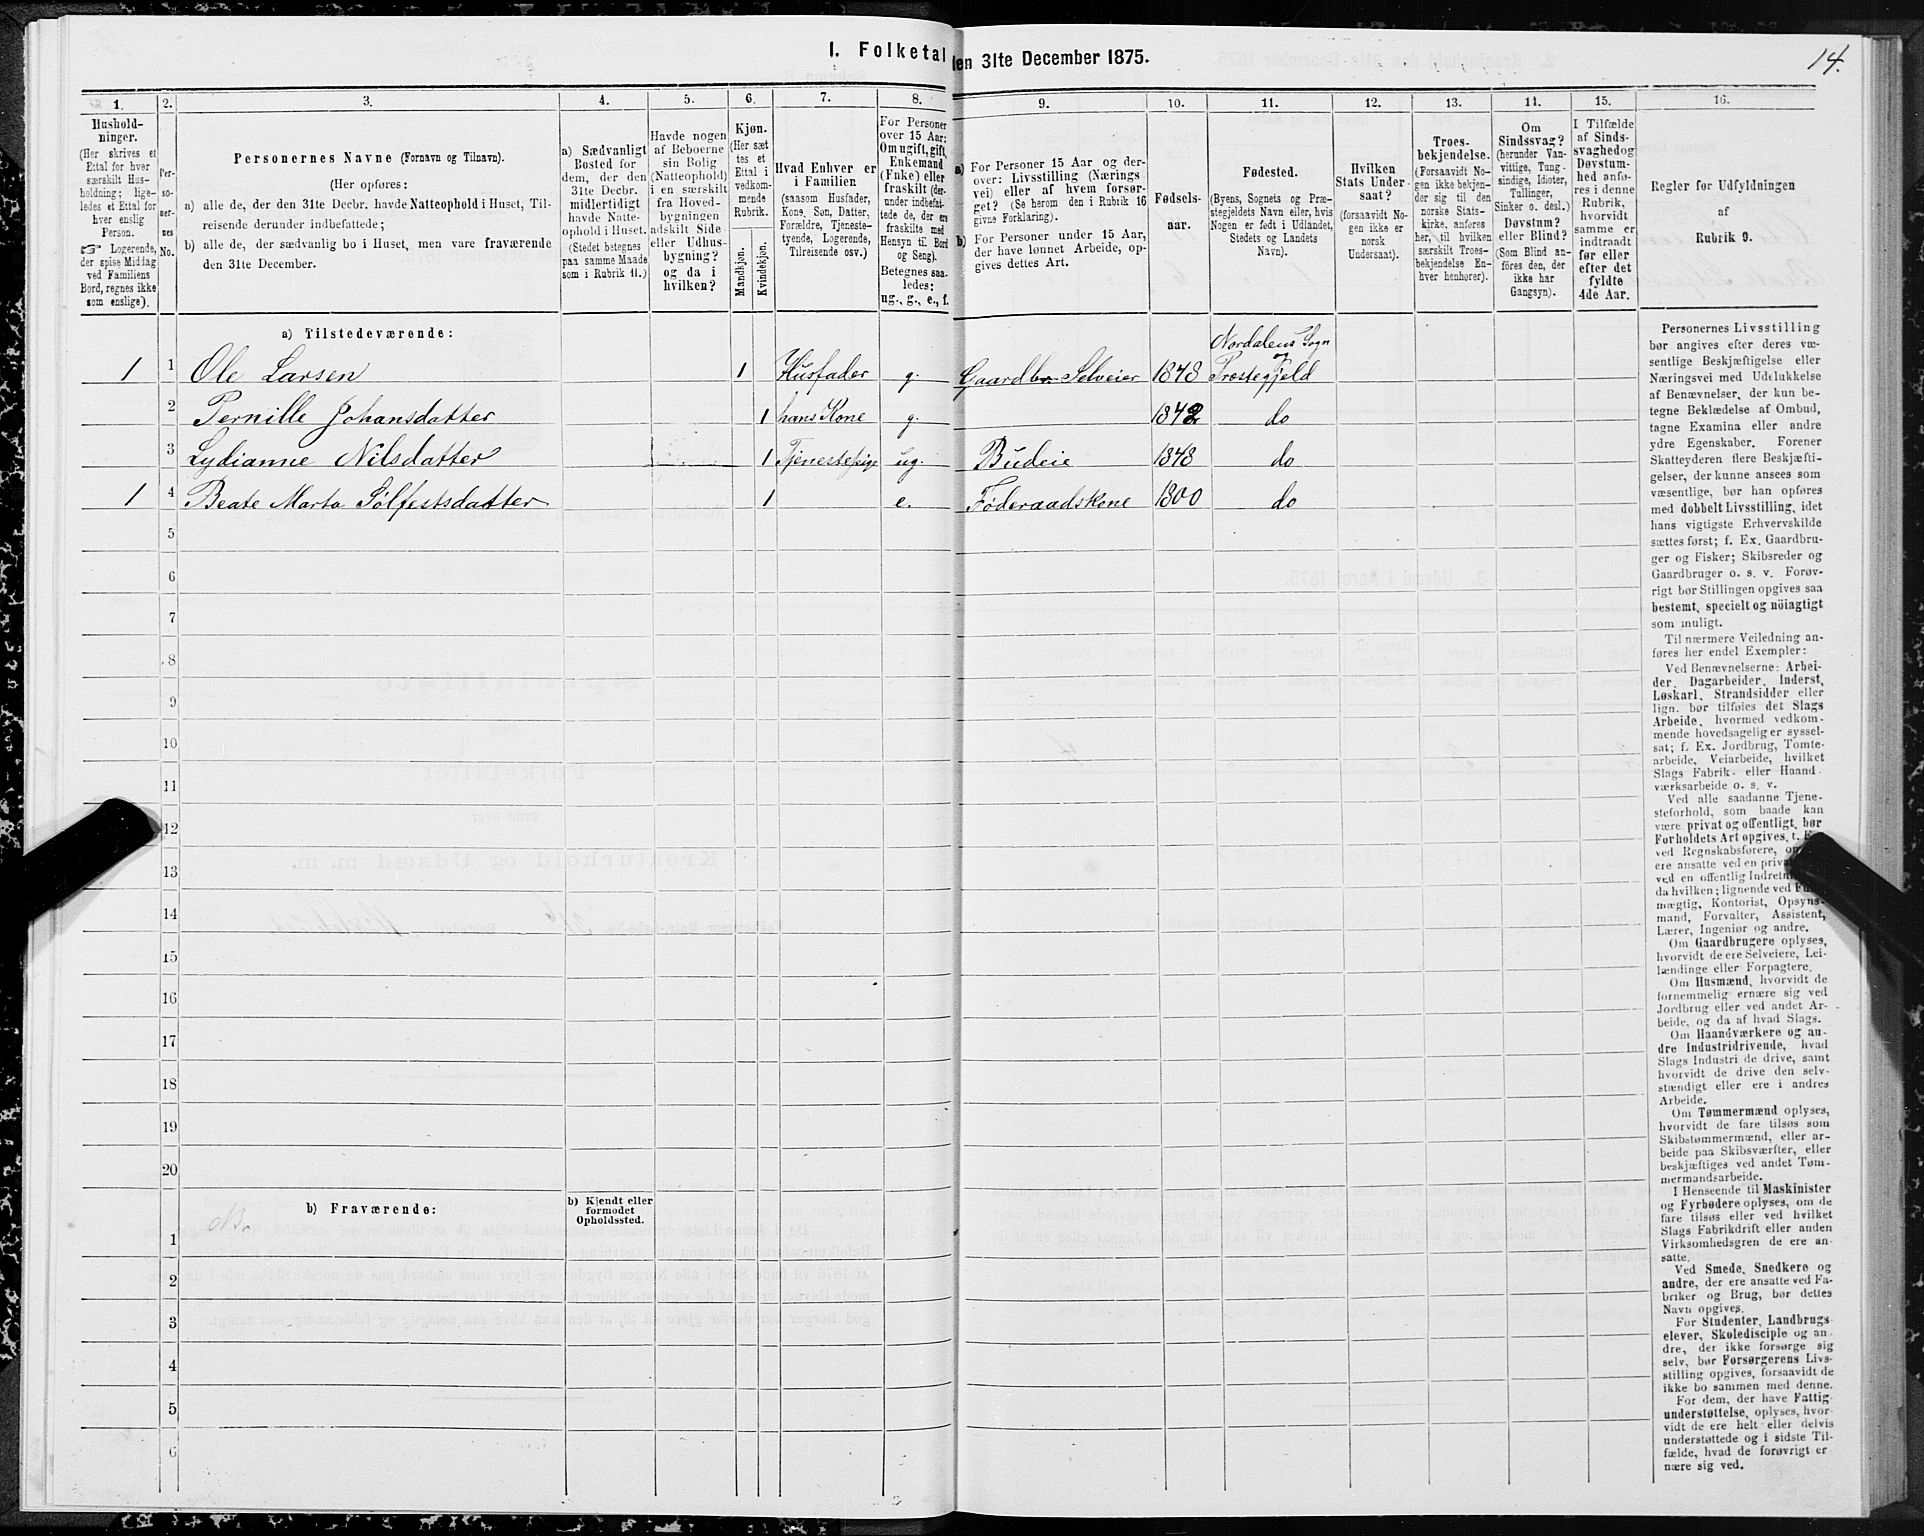 I. Folketal den 31te December 1875.
14.
1.
2.
3.
4.
5.
6.
7.
8.
9.
10.
11.
12.
13.
14.
15.
16.
Hushold-
ninger.
(Her skrives et
Ettal for hver
særskilt Hus-
holdning; lige-
ledes et Ettal for
hver enslig
Person.
☞ Logerende,
der spise Middag
ved Familiens
Bord, regnes ikke
som enslige).
Per-
so-
ner-
nes
No.
Personernes Navne (Fornavn og Tilnavn).
(Her opføres:
a) alle de, der den 31te Decbr. havde Natteophold i Huset, Til-
reisende derunder indbefattede;
b) alle de, der sædvanlig bo i Huset, men vare fraværende
den 31te December.
a) Sædvanligt
Bosted for
dem, der den
31te Decbr.
midlertidigt
havde Natte-
ophold i Huset.
(Stedet betegnes
paa samme Maade
som i Rubrik 11.)
Havde nogen
af Beboerne
sin Bolig
(Natteophold)
i en særskilt
fra Hoved-
bygningen
adskilt Side-
eller Udhus-
bygning?
og da i
hvilken?
Kjøn.
(Her sæt
tes et
Ettal i
vedkom-
mende
Rubrik.
Mandkjøn.
Kvindekjøn.
Hvad Enhver er
i Familien
(saasom Husfader,
Kone, Søn, Datter,
Forældre, Tjeneste-
tyende, Logerende,
Tilreisende osv.)
For Personer
over 15 Aar:
Om ugift, gift,
Enkemand
(Enke) eller
fraskilt (der-
under indbefat-
tede de, der ere
fraskilte med
Hensyn til Bord
og Seng).
Betegnes saa-
ledes:
ug., g., e., f.
a) For Personer 15 Aar og der-
over: Livsstilling (Nærings
vei) eller af hvem forsør-
get? (Se herom den i Rubrik 16
givne Forklaring).
b) For Personer under 15 Aar,
der have lønnet Arbeide, op-
gives dettes Art.
Fødsels-
aar.
Fødested.
(Byens, Sognets og Præ-
stegjeldets Navn eller, hvis
Nogen er født i Udlandet,
Stedets og Landets
Navn).
Hvilken
Stats Under-
saat?
(forsaavidt No-
gen ikke er
norsk
Undersaat).
Troes-
bekjendelse.
(Forsaavidt No-
gen ikke bekjen-
der sig til den
norske Stats-
kirke, anføres
her, til hvilken
særskilt Troes-
bekjendelse En-
hver henhører).
Om
Sindssvag?
(herunder Van-
vittige, Tung-
sindige, Idioter,
Tullinger,
Sinker o. desl.)
Døvstum?
eller Blind?
(Som Blind an-
føres den, der
ikke har
Gangsyn).
I Tilfælde
af Sinds-
svaghed og
Døvstum-
hed anfø-
res i denne
Rubrik,
hvorvidt
samme er
indtraadt
før eller
efter det
fyldte
4de Aar.
Regler for Udfyldningen
af
Rubrik 9.
a) Tilstedeværende:
1 1 Ole Larsen 1 Husfader g. Gaardbr Selveier 1848 Nordalens Sogn og Præstegjeld
2 Pernille Johansdatter 1 hans Kone g. 1842 do
3 Lydianne Nilsdatter 1 Tjenestepige ug. Budeie 1848 do
1 4 Beate Marta Sølfestsdatter 1 e. Føderaadskone 1800 do
5
6
7
8
9
10
11
12
13
14
15
16
17
18
19
20
b) Fraværende:
b) Kjendt eller
formodet
Opholdssted.
1
2
3
4
5
6
Personernes Livsstilling
bør angives efter deres væ-
sentlige Beskjæftigelse eller
Næringsvei med Udelukkelse
af Benævnelser, der kun be-
tegne Beklædelse af Ombud,
tagne Examina eller andre
ydre Egenskaber. Forener
Skatteyderen flere Beskjæfti-
gelser, der kunne ansees som
væsentlige, bør han opføres
med dobbelt Livsstilling, idet
hans vigtigste Erhvervskilde
sættes først; f. Ex. Gaardbru-
ger og Fisker; Skibsreder og
Gaardbruger o. s. v. Forøv-
rigt bør Stillingen opgives saa
bestemt, specielt og nöiagtigt
som muligt.
Til nærmere Veiledning an-
føres her endel Exempler:
Ved Benævnelserne: Arbei-
der, Dagarbeider, Inderst,
Løskarl, Strandsidder eller
lign. bør tilføies det Slags
Arbeide, hvormed vedkom-
mende hovedsagelig er syssel-
sat; f. Ex. Jordbrug, Tomte-
arbeide, Veiarbeide, hvilket
Slags Fabrik- eller Haand-
værksarbeide o. s. v.
Ved alle saadanne Tjene-
steforhold, som baade kan
være privat og offentligt, bør
Forholdets Art opgives, t.
ved Regnskabsførere,
ere ansatte ved en
ved en offentlig
da hvilken; lignende ved
mægtig, Kontorist, Opsyns-
mand, Forvalter, Assistent,
Lærer, Ingeniør og andre.
Om Gaardbrugere oplyses,
hvorvidt de ere Selveiere, Lei-
lændinge eller Forpagtere.
Om Husmænd, hvorvidt de
fornemmelig ernære sig ved
Jordbrug eller ved andet Ar-
beide, og da af hvad Slags.
Om Haandværkere og an-
dre Industridrivende, hvad
Slags Industri de drive, samt
hvorvidt de drive den selv-
stændigt eller ere i andres
Arbeide.
Om Tømmermænd oplyses,
hvorvidt de fare tilsøs som
Skibstømmermænd, eller ar-
beide paa Skibsværfter, eller
beskjæftiges ved andet Tøm-
mermandsarbeide.
I Henseende til Maskinister
og Fyrbødere oplyses, om de
fare tilsøs eller ved hvilket
Slags Fabrikdrift eller anden
Virksomhedsgren de ere an-
satte.
Ved Smede, Snedkere og
andre, der ere ansatte ved Fa-
briker og Brug, bør dettes
Navn opgives.
For Studenter, Landbrugs-
elever, Skoledisciple og an-
dre, der ikke forsørge sig
selv, bør Forsørgerens Livs-
stilling opgives, forsaavidt de
ikke bo sammen med denne.
For dem, der have Fattig-
understøttelse, oplyses, hvor-
vidt de ere helt eller delvis
understøttede og i sidste Til-
fælde, hvad de forøvrigt er-
nære sig ved.